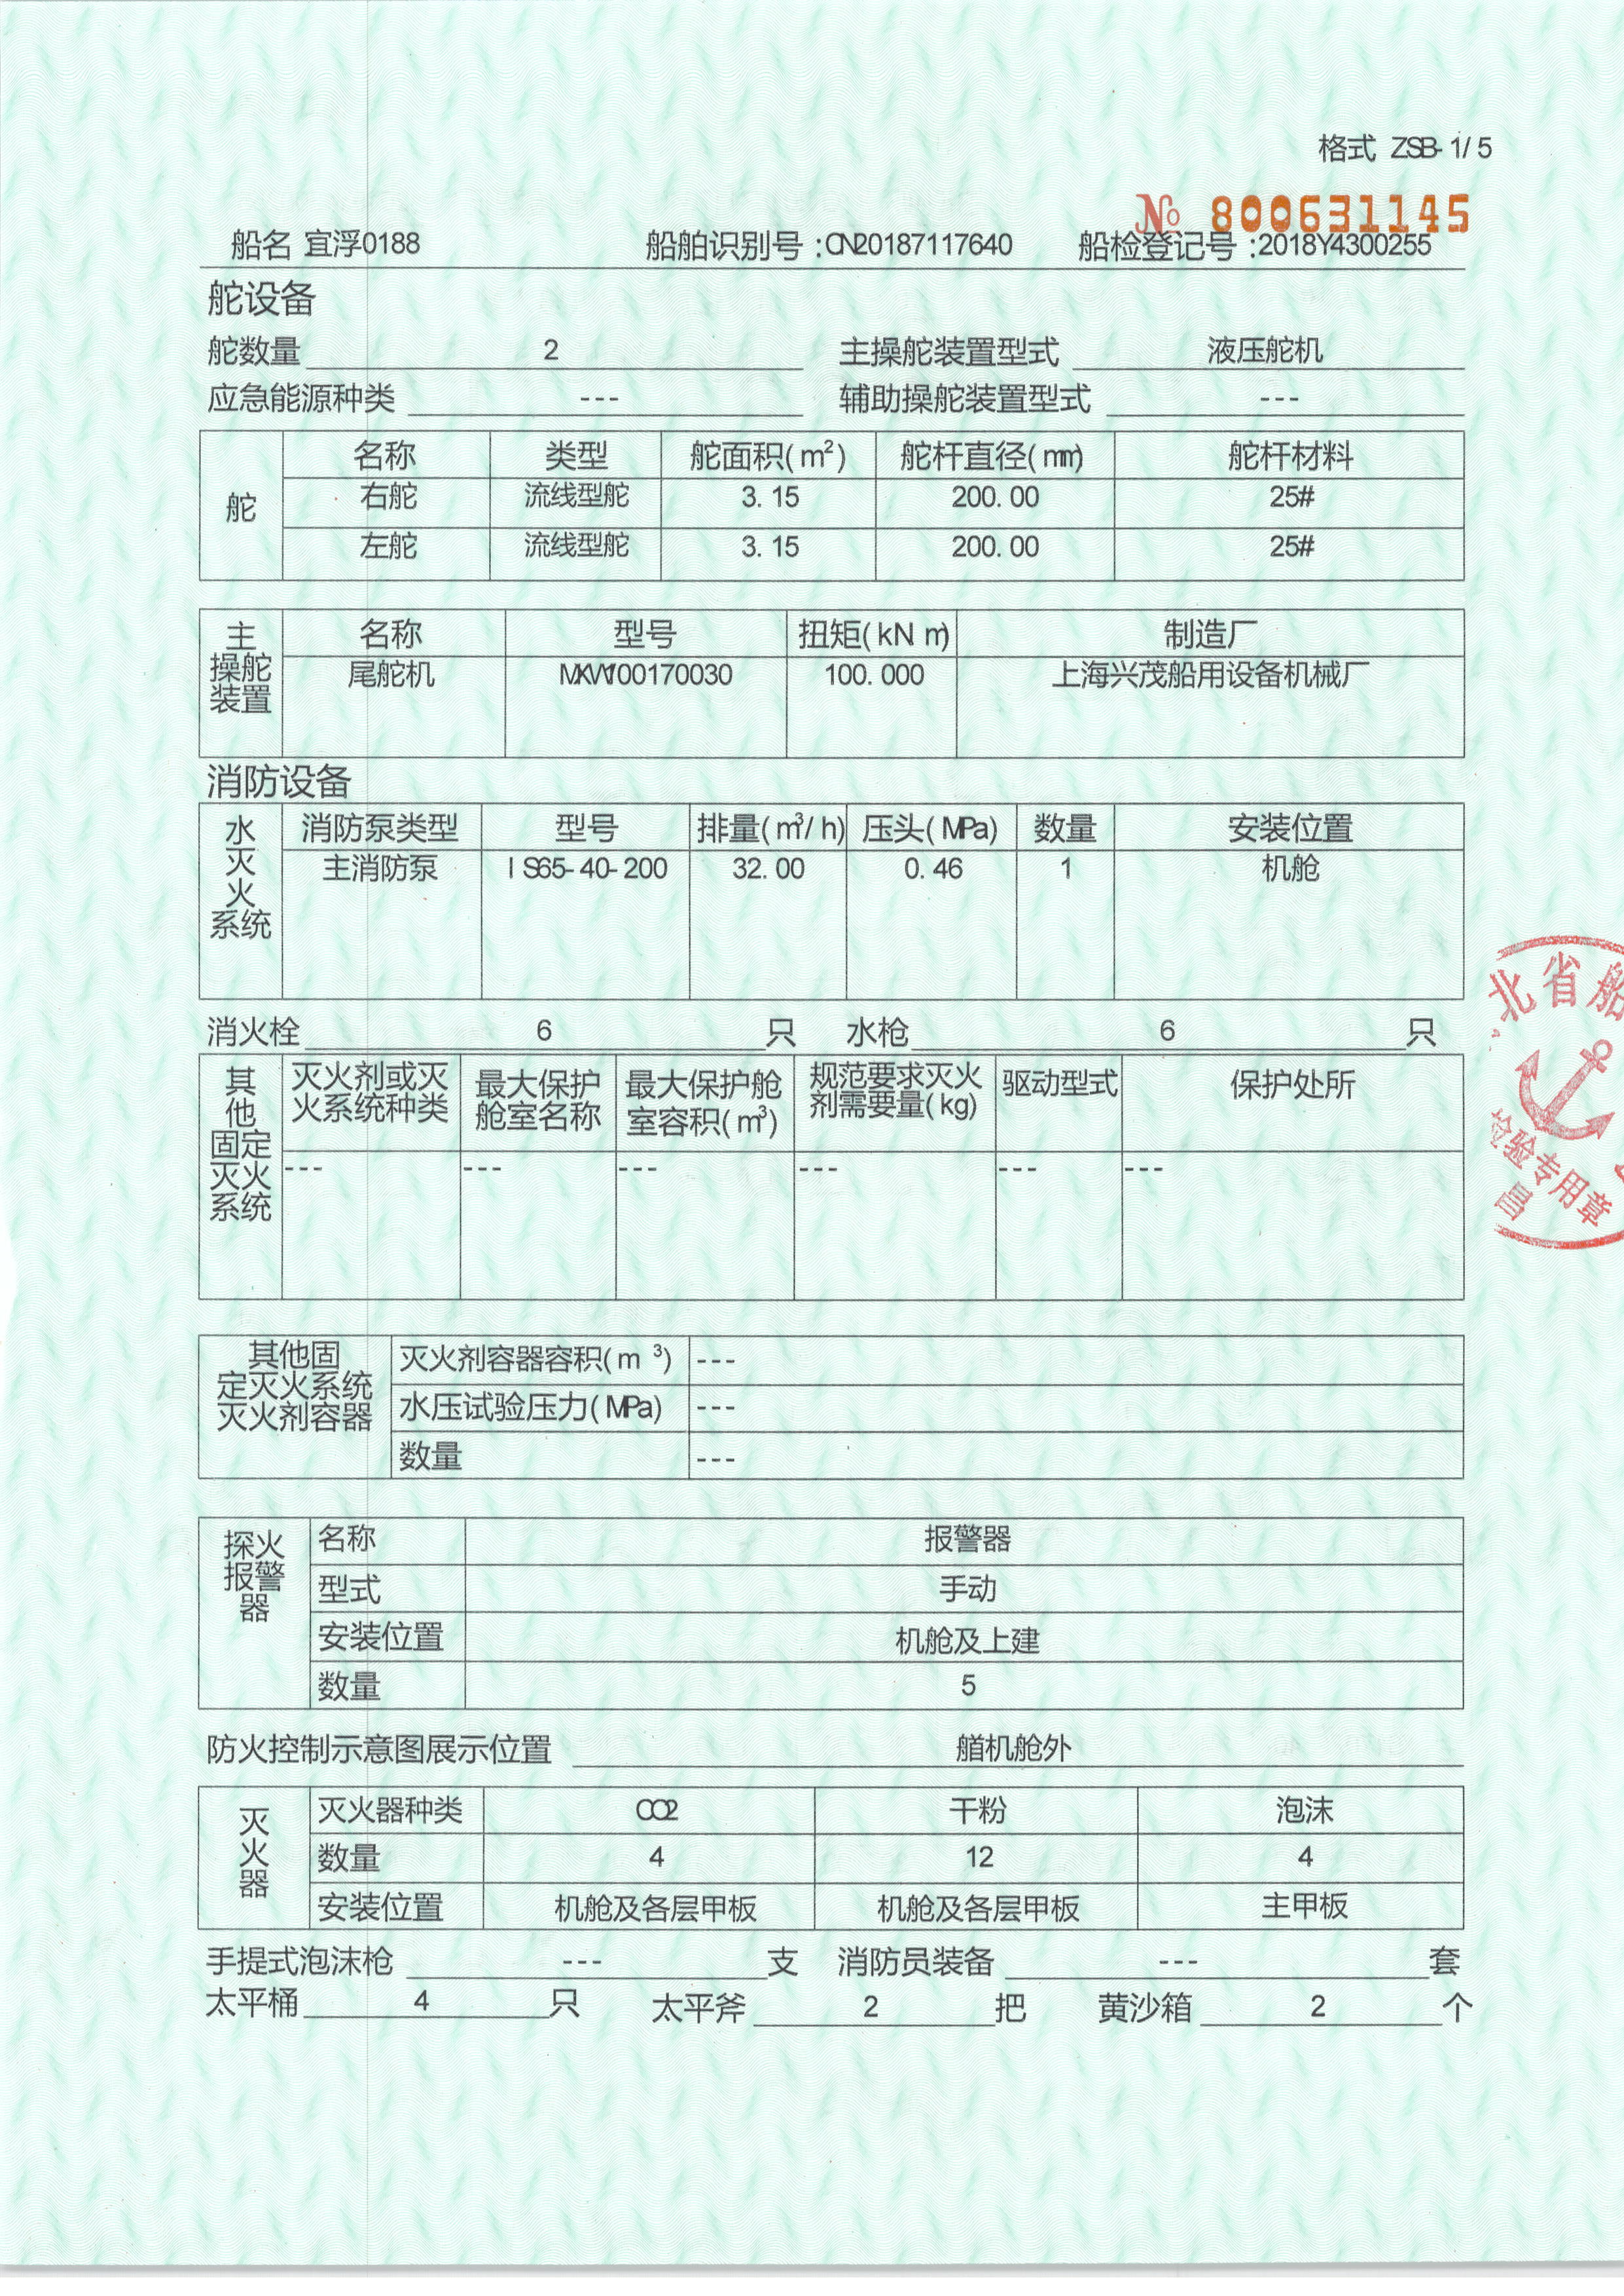 格式 ZSB-1/5
№ 800631145
船名 宜浮0188 船舶识别号:CN20187117640 船检登记号:2018Y4300255
舵设备
舵数量 2 主操舵装置型式 液压舵机
应急能源种类 --- 辅助操舵装置型式 ---
舵 名称 类型 舵面积(m²) 舵杆直径(mm) 舵杆材料
右舵 流线型舵 3.15 200.00 25#
左舵 流线型舵 3.15 200.00 25#
主操舵装置 名称 型号 扭矩(kN m) 制造厂
尾舵机 100.000 上海兴茂船用设备机械厂
消防设备
水灭火系统 消防泵类型 型号 排量(m³/h) 压头(MPa) 数量 安装位置
主消防泵 IS65-40-200 32.00 0.46 1 机舱
消火栓 6 只 水枪 6 只
其他固定灭火系统 灭火剂或灭火系统种类 最大保护舱室名称 最大保护舱室容积(m³) 规范要求灭火剂需要量(kg) 驱动型式 保护处所
--- --- --- --- --- ---
其他固定灭火系统灭火剂容器 灭火剂容器容积(m³) ---
水压试验压力(MPa) ---
数量 ---
探火报警器 名称 报警器
型式 手动
安装位置 机舱及上建
数量 5
防火控制示意图展示位置 艏机舱外
灭火器 灭火器种类 CO2 干粉 泡沫
数量 4 12 4
安装位置 机舱及各层甲板 机舱及各层甲板 主甲板
手提式泡沫枪 --- 支 消防员装备 --- 套
太平桶 4 只 太平斧 2 把 黄沙箱 2 个
北省船
检验专用章
昌